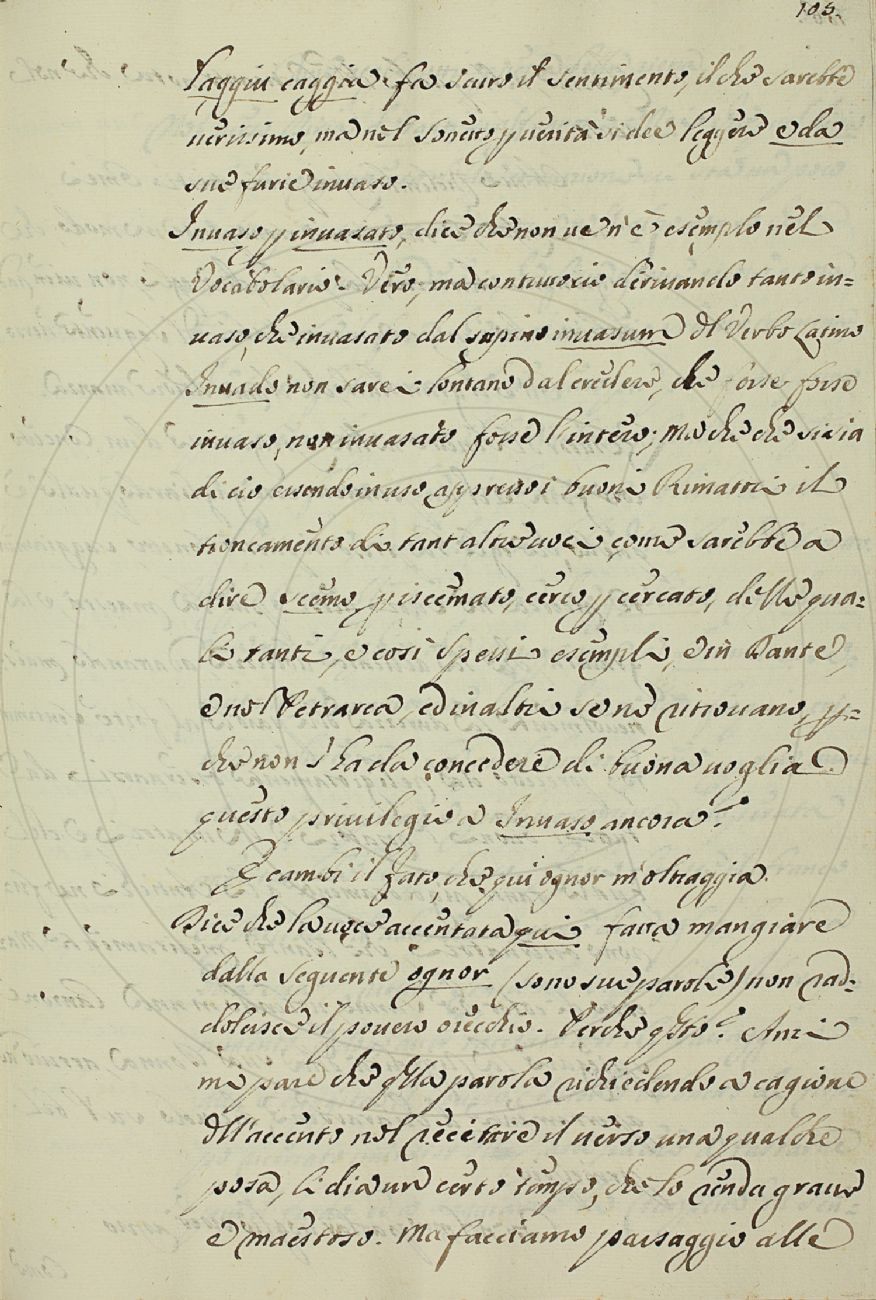 103.
laggiu caggia fa scuro il sentimento, il che sarebbe
verissimo, ma nel Sonetto p verità si dee leggere e da
sue furie invaso.
Invaso p invasato, dice che non ve n'è esemplo nel
Vocabolario. Vero; ma contuttocio derivando tanto in=
vaso, che invasato dal supino invasum dl Verbo Latino
Invado non sarei lontano dal credere, che forse forse
invaso, non invasato fosse l'intero; Ma che che si sia
di cio essendo in uso appresso i buoni Rimatori il
troncamento di tant altre voci, come sarebbe a
dire scemo p iscemato, cerco p cercato, delle qua=
li tanti, e così spessi esempli, e in Dante,
e nel Petrarca, ed in altri se ne ritrovano, p=
che non s'ha da concedere di buona voglia
questo privilegio a Invaso ancora?
E cambi il Fato, che qui ognor m'oltraggia.
Dice che la voce accentata qui fatta mangiare
dalla seguente ognor (sono sue parole) non rad=
dolcisce il povero orecchio. Perche qsto? Anzi
mi pare che qlla parola richiedendo a cagione
dll'accento nel recitare il verso una qualche
posa, li dia un certo tempo, che lo renda grave
e maestoso. Ma facciamo passaggio alle